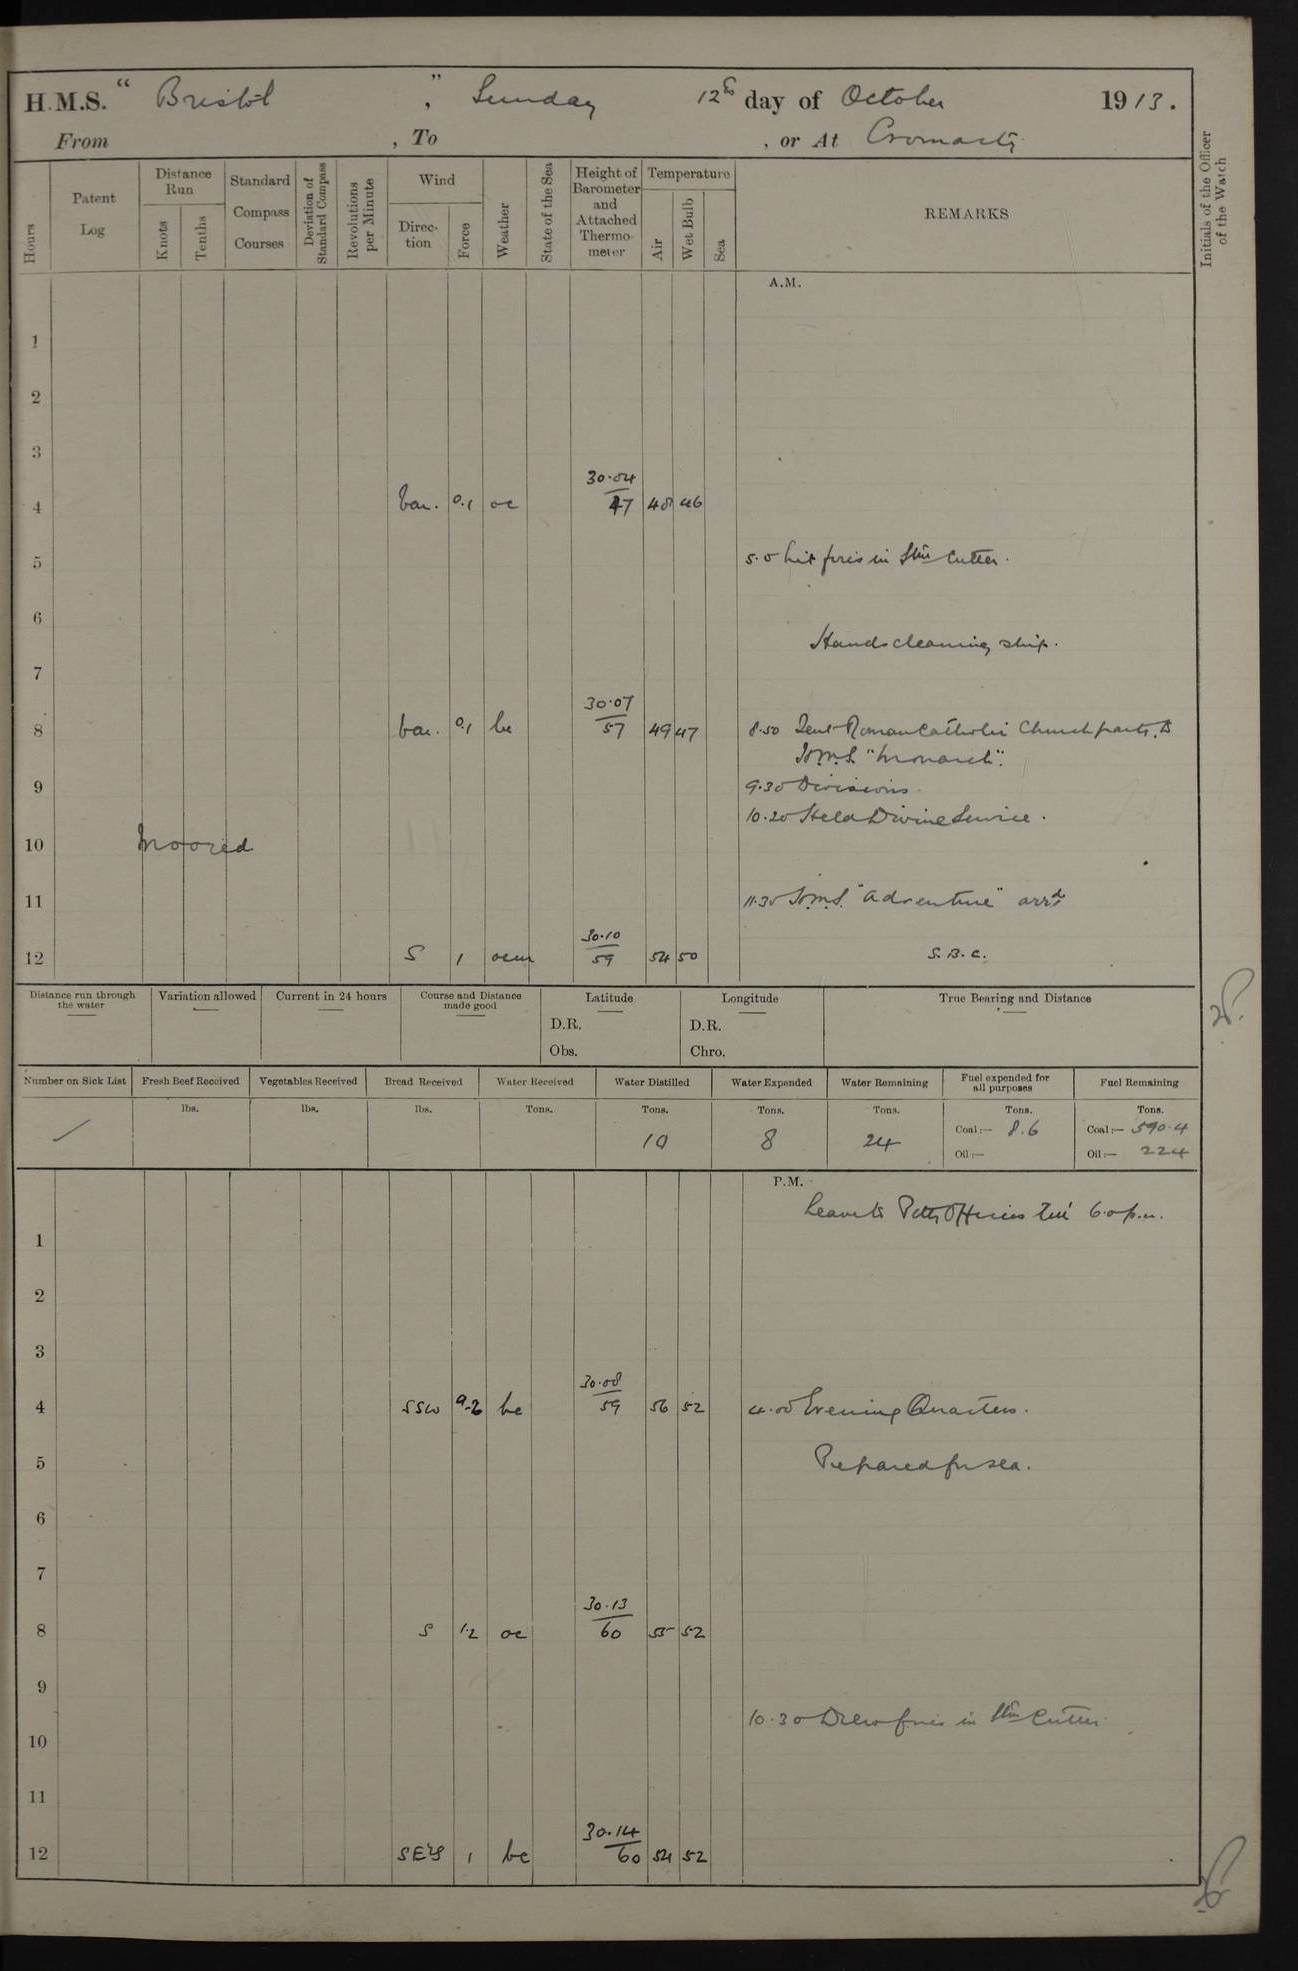 H.M.S. " Bristol ", Sunday 12th day of October 1913.
From , To , or At Cromarty
Hours
Patent Log
Distance Run
Knots
Tenths
Standard Compass Courses
Deviation of Standard Compass
Revolutions per Minute
Wind
Direction
Force
Weather
State of the Sea
Height of Barometer and Attached Thermometer
Temperature
Air
Wet Bulb
Sea
REMARKS
Initials of the Officer of the Watch
A.M.
1
2
3
30.04
4 Var. 0.1 oc 47 48 46
5 5.0 Lit fires in Stm Cutter.
6
Hands cleaning ship.
7
30.07
8 Var. 0.1 bc 57 49 47 8.50 Sent Roman Catholic Church party to
H.M.S. "Monarch".
9 9.30 Divisions.
10.20 Held Divine Service.
10 Moored
11 11.30 H.M.S. "Adventure" arrd
30.10
12 S 1 ocm 59 54 50 S.B.C.
Distance run through the water
Variation allowed
Current in 24 hours
Course and Distance made good
Latitude
D.R.
Obs.
Longitude
D.R.
Chro.
True Bearing and Distance
Number on Sick List
Fresh Beef Received
Vegetables Received
Bread Received
Water Received
Water Distilled
Water Expended
Water Remaining
Fuel expended for all purposes
Fuel Remaining
lbs. lbs. lbs. Tons. Tons. Tons. Tons. Tons. Tons.
Coal:— 8.6 Coal:— 590.4
10 8 24
Oil:— Oil:— 224
P.M.
Leave to Petty Officers till 6.0 p.m.
1
2
3
30.08
4 SSW 0.2 bc 59 56 52 4.00 Evening Quarters.
5 Prepared for sea.
6
7
30.13
8 S 1.2 oc 60 55 52
9
10.30 Drew fires in Stm Cutter.
10
11
30.14
12 SE'S 1 bc 60 54 52